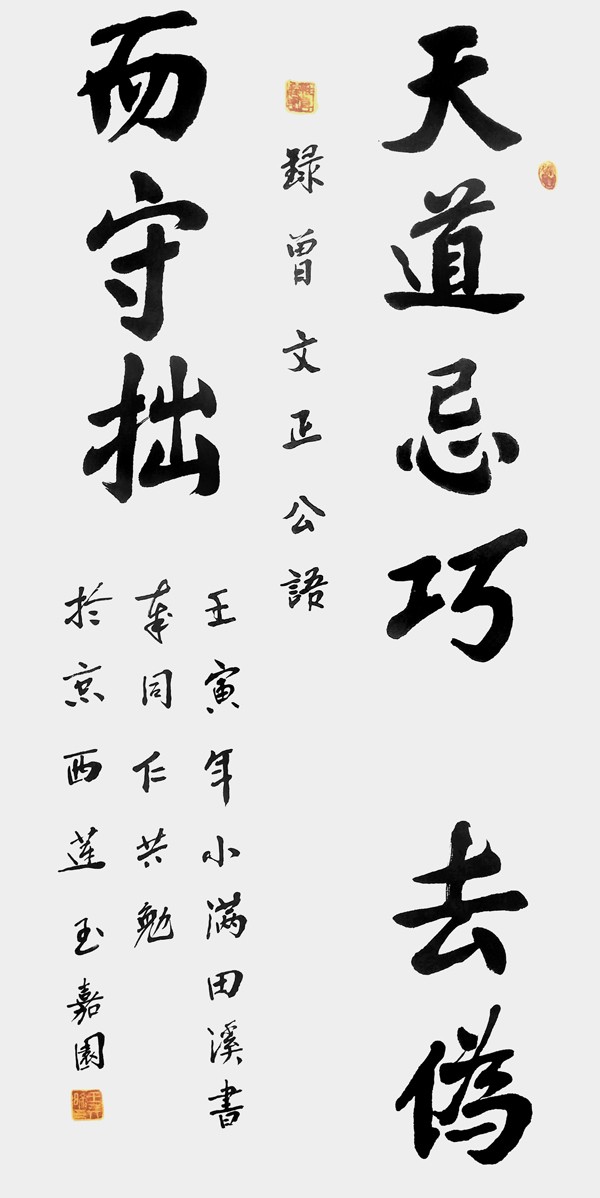 天道忌巧 去偽
而守拙
録曾文正公語
壬寅年小滿田溪書
奉同仁共勉
於京西蓮玉嘉園